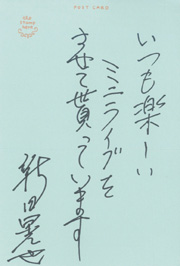 POST CARD
いつも楽しい
ミニライブを
させて貰っています
新田晃也